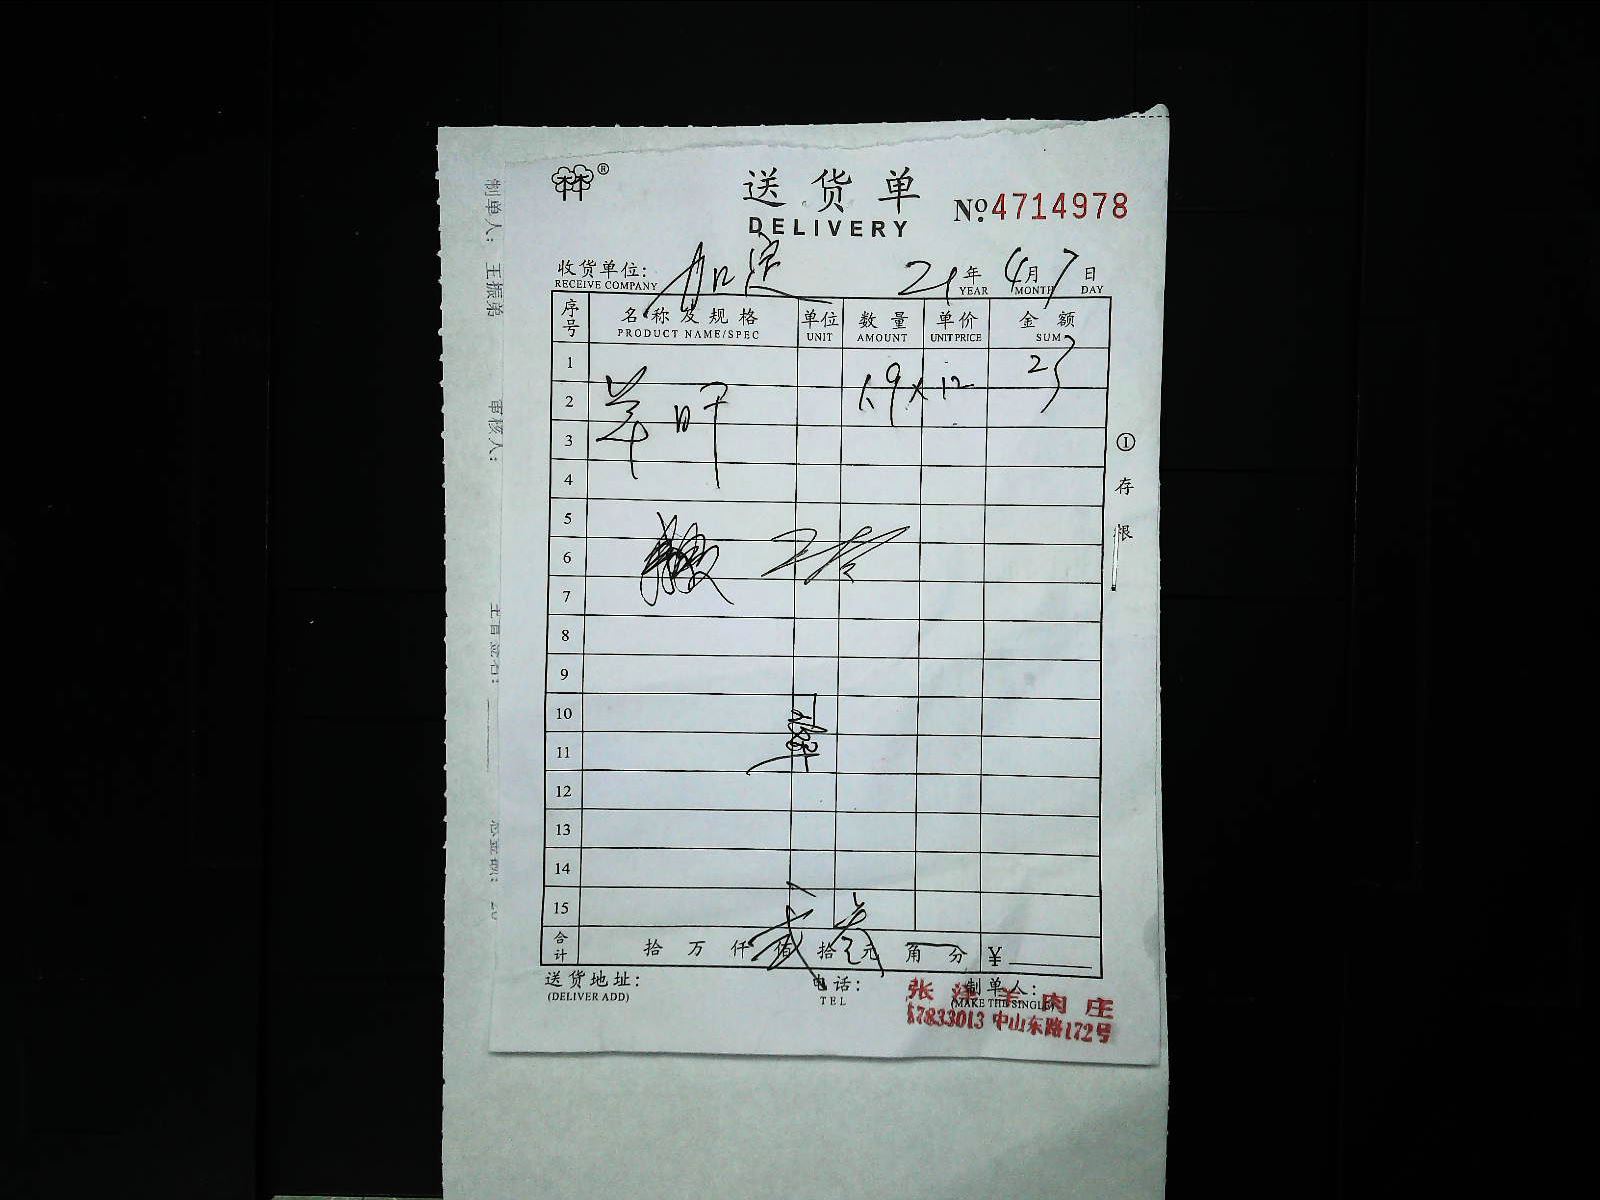 ®
送货单
DELIVERY
№ 4714978
收货单位: 加定 21年 4月 7日
RECEIVE COMPANY YEAR MONTH DAY
序号 名称及规格 单位 数量 单价 金额
PRODUCT NAME/SPEC UNIT AMOUNT UNIT PRICE SUM
1
2 羊肝 1.9 × 12 23
3
4
5
6
7
8
9
10
11
12
13
14
15
合计 拾 万 仟 佰 贰 拾 叁 元 角 分 ¥
送货地址: 电话: 制单人:
(DELIVER ADD) TEL (MAKE THE SINGLE)
张 羊肉庄
57833013 中山东路172号
①存根
制单人: 王振弟
审核人: